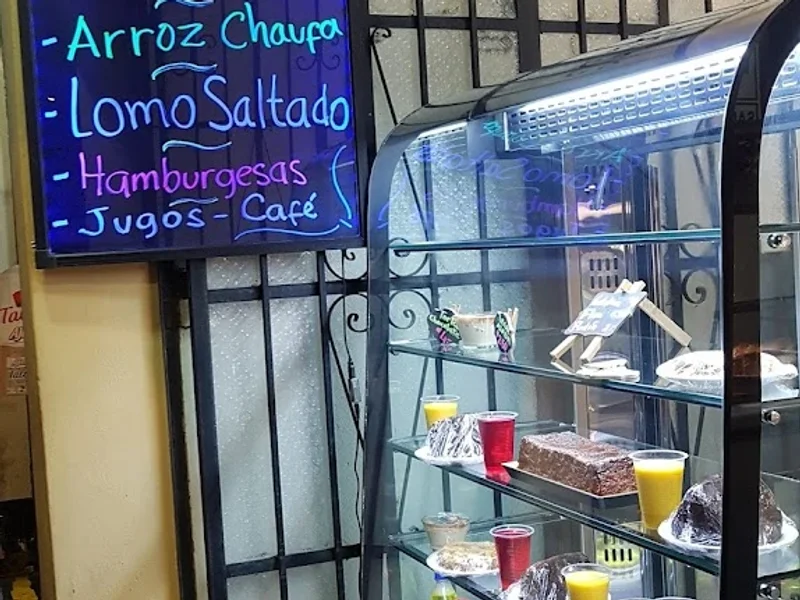 - Arroz Chaufa
- Lomo Saltado
- Hamburgesas
- Jugos - Café